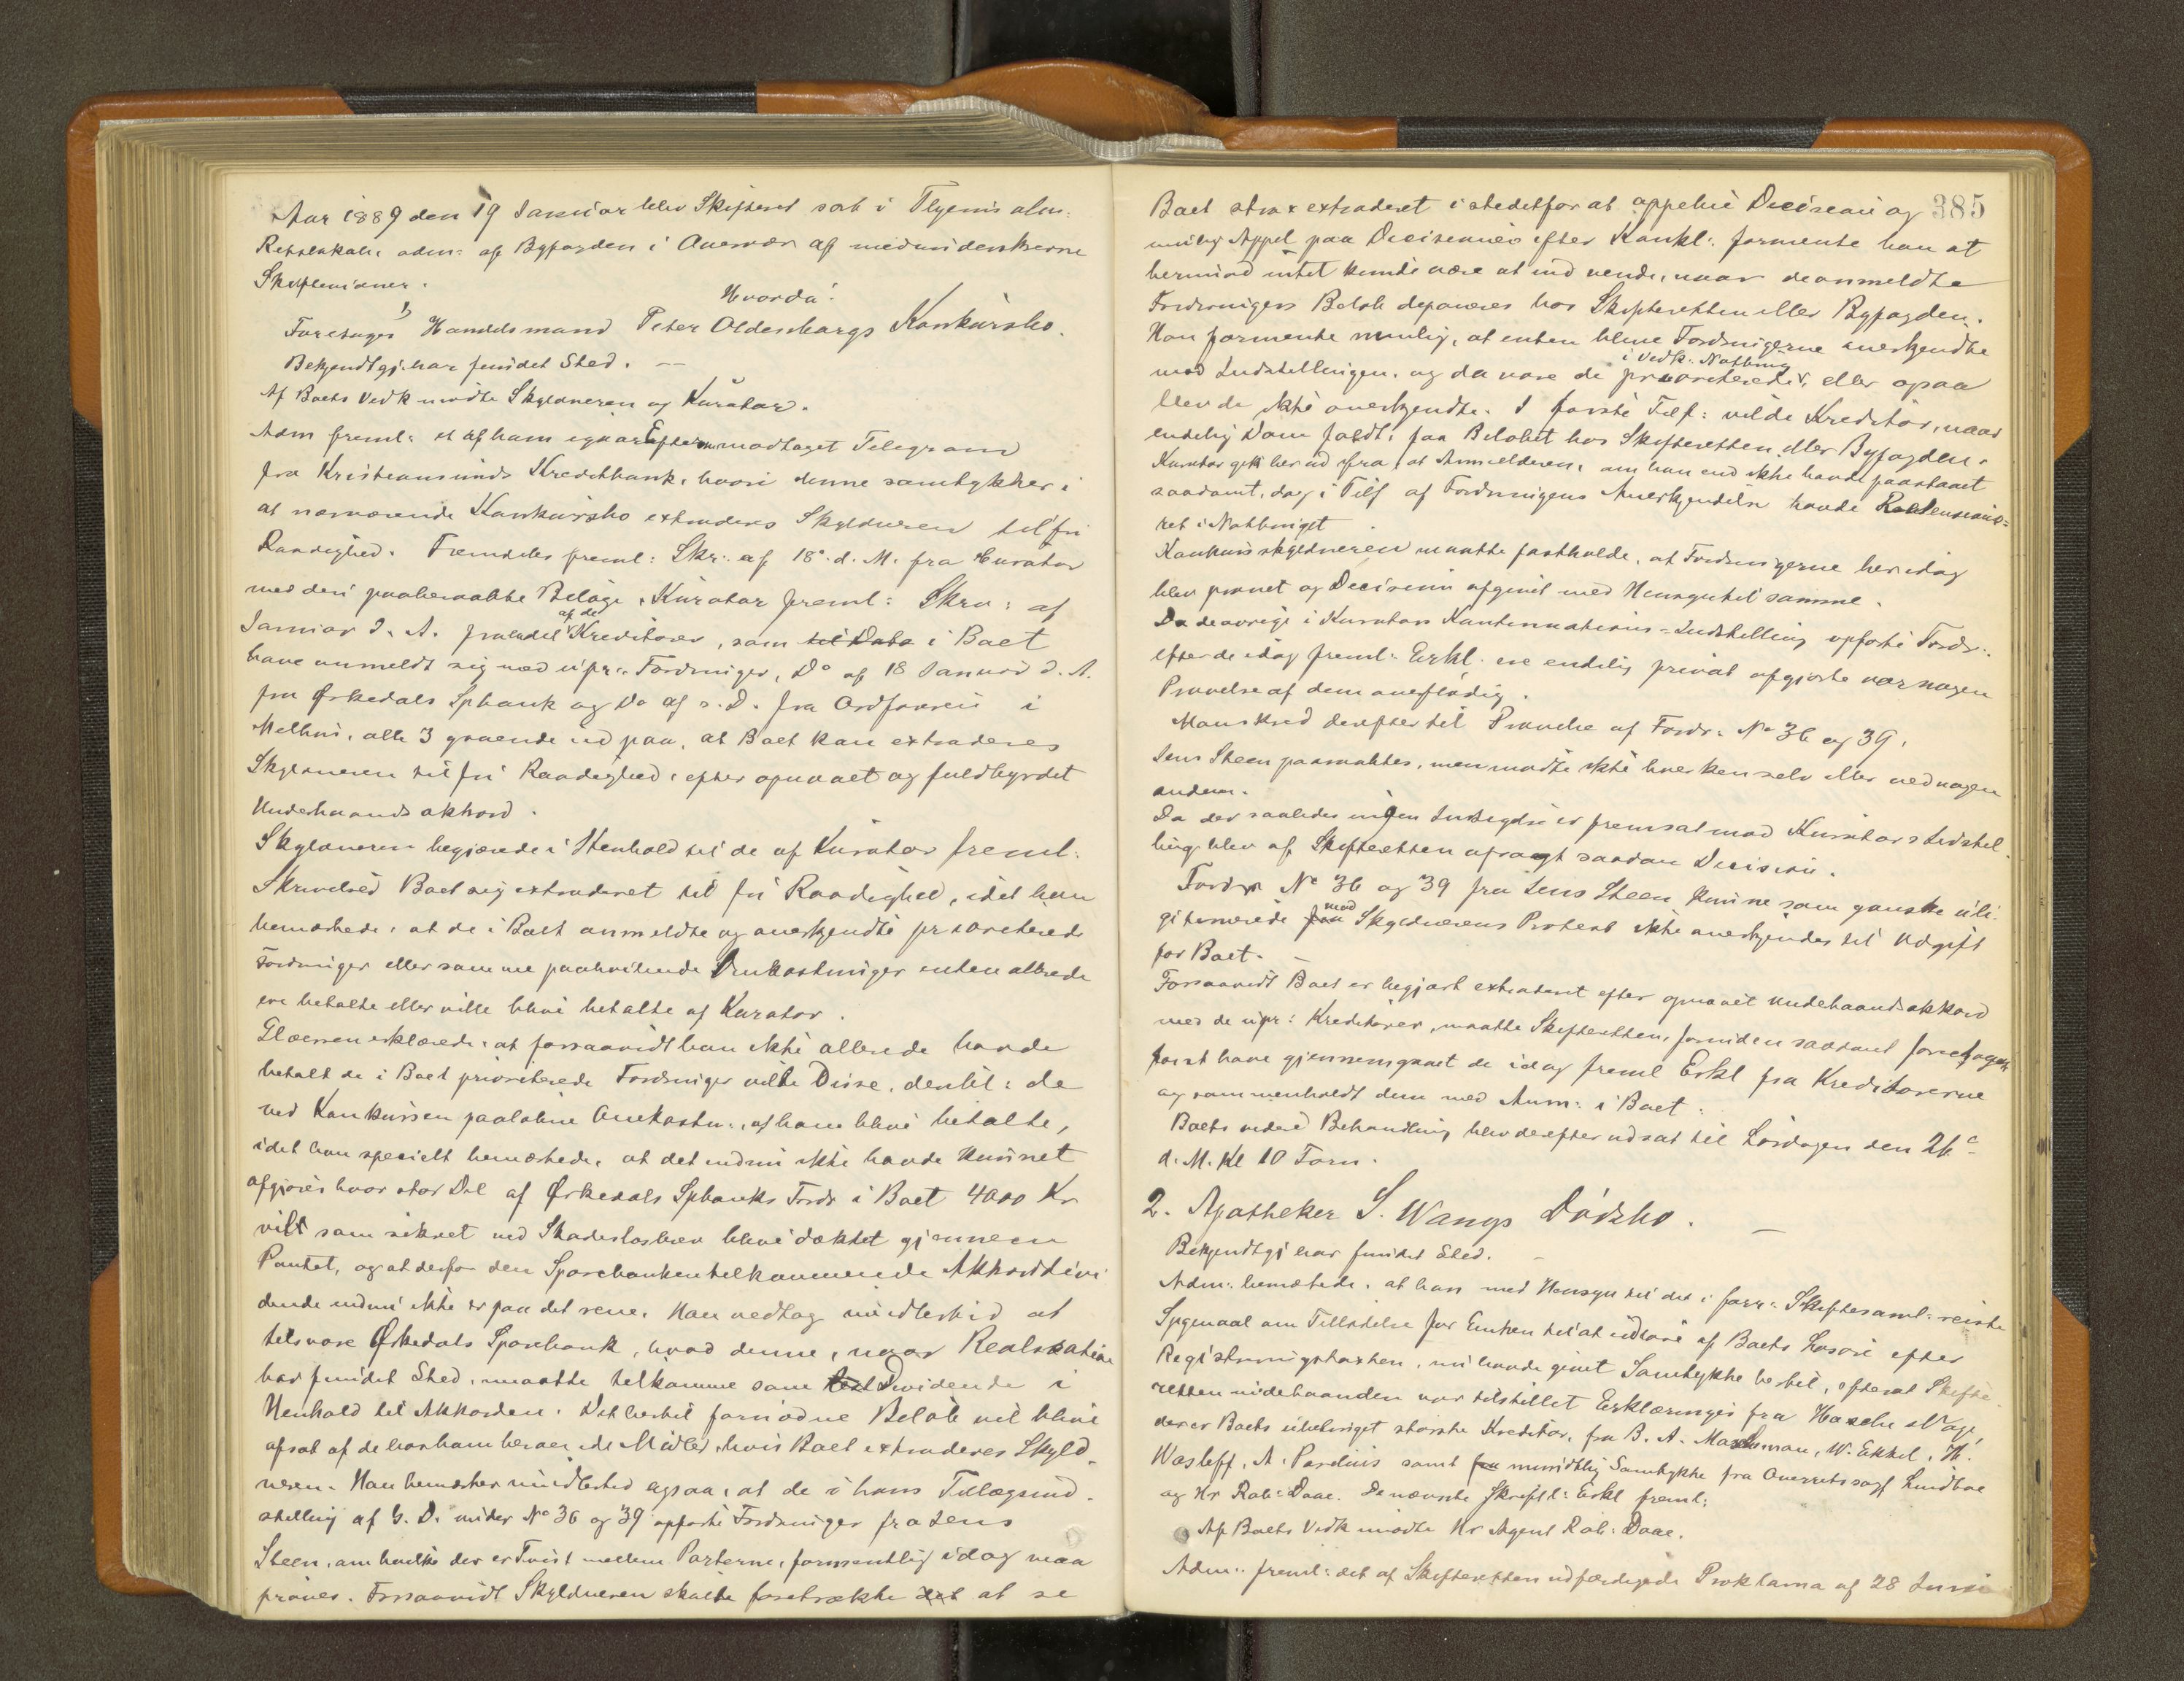 Aar 1889 den 19 Januar blev Skifteret sat i Thjems alm:
Retslokale, adm: af Byfogden i Overvær af medunderskrevne
Skiftevidner.
Hvorda:
1) Foretoges Handelsmand Peter Oldenborgs Konkursbo.
Bekjendtgj. har fundet Sted. —
Af Boets Vedk mødte Skyldneren og Kurator.
Adm freml: et af ham igaar Efterm modtaget Telegram
fra Kristiansunds Kreditbank, hvori denne samtykker i
at nærværende Konkursbo extraderes Skyldneren til fri
Raadighed. Fremdeles freml: Skr: af 18de d. M. fra Curator
med deri paaberaabte Bilage, Kurator freml: Skrv: af
Januar d. A. fra endel af de Kreditorer, som til Dato i Boet
have anmeldt sig med upr: Fordringer, Do af 18 Januar d. A.
fra Ørkedals Spbank og Do af s. D. fra Ordføreren i
Melhus, alle 3 gaaende ud paa, at Boet kan extraderes
Skyldneren til fri Raadighed, efter opnaaet og fuldbyrdet
Underhaandsakkord.
Skyldneren begjærede i Henhold til de af Kurator freml:
Skrivelser Boet sig extraderet til fri Raadighed, idet han
bemærkede, at de i Boet anmeldte og anerkjendte prioriterede
Fordringer eller samme paahvilende Omkostninger enten allerede
ere betalte eller ville blive betalte af Kurator.
erklærede, at forsaavidt han ikke allerede havde
betalt de i Boet prioriterede Fordringer vilde Disse, dertil: de
ved Konkursen paaløbne Omkostn:, af ham blive betalte,
idet han specielt bemærkede, at det endnu ikke havde kunnet
afgjøres hvor stor Del af Ørkedals Spbanks Fordr i Boet 4000 Kr
vilde som sikret ved Skadesløsbrev blive dækket gjennem
Pantet, og at derfor den Sparebanken tilkommende Akkorddivi
dende endnu ikke er paa det rene. Han vedtog imidlertid at
tilsvare Ørkedals Sparebank, hvad denne, naar Realisation
har fundet Sted, maatte tilkomme som Dividende i
Henhold til Akkorden. Det hertil fornødne Beløb vil blive
afsat af de hos ham beroende Midler, hvis Boet extraderes Skyld-
neren. Han bemærker imidlertid ogsaa, at de i hans Tillægsind-
stilling af G. D. under No 36 og 39 opførte Fordringer fra Jens
Steen, om hvilke der er Tvist mellem Parterne, formentlig idag maa
prøves. Forsaavidt Skyldneren skulde foretrække det at se
385
Boet strax extraderet istedetfor at appellere Decisionen og
mulig Appel paa Decisionen efter Konkl: formente han at
hermod intet kunde være at indvende, naar de anmeldte
Fordringers Beløb deponeres hos Skifteretten eller Byfogden.
Han formente nemlig, at enten bleve Fordringerne anerkjendte
mod Indstillingen, og da vare de prioriterede i Vedk: Nothning, eller ogsaa
blev de ikke anerkjendte. I første Tilf: vilde Kreditor, naar
endelig Dom faldt, faa Beløbet hos Skifteretten eller Byfogden.
Kurator gik herud fra, at Anmelderen, om han end ikke havde paastaaet
saadant, dog i Tilf af Fordringens Anerkjendelse havde Retensions-
ret i Nothninget.
Konkursskyldneren maatte fastholde, at Fordringerne her idag
blev prøvet og Decision afgivet med Hensyn til samme.
Da de øvrige i Kurators Kontinuations-Indstilling opførte Fordr:
efter de idag freml: Erkl. ere endelig privat afgjorte var nogen
Prøvelse af dem overflødig.
Man skred derefter til Prøvelse af Fordr: No 36 og 39.
Jens Steen paaraabtes, men mødte ikke hverken selv eller ved nogen
anden.
Da der saaledes ingen Indsigelse er fremsat mod Kurators Indstil-
ling blev af Skifteretten afsagt saadan Decision.
Fordr No 36 og 39 fra Jens Steen kunne som ganske uli-
gitimerede mod Skyldnerens Protest ikke anerkjendes til Udgift
for Boet.
Forsaavidt Boet er begjært extraderet efter opnaaet Underhaandsakkord
med de upr: Kreditorer, maatte Skifteretten, forinden saadant foretoges,
først have gjennemgaaet de idag freml Erkl fra Kreditorerne
og sammenholdt dem med Anm: i Boet.
Boets videre Behandling blev derefter udsat til Lørdagen den 26e
d. M. Kl 10 Form.
2. Apotheker S. Wangs Dødsbo. —
Bekjendtgj har fundet Sted. —
Adm: bemærkede, at han med Hensyn til det i forr: Skiftesaml: reiste
Spgsmaal om Tilladelse for Enken til at udløse af Boets Løsøre efter
Registreringstaxten, nu havde givet Samtykke hertil, efterat Skifte-
retten underhaanden var tilstillet Erklæringer fra Hasche Vogt,
der er Boets ubetinget største Kreditor, fra B. A. Maschman, W. Ekkel, H.
Wasleff, A. Pardiis samt mundtlig Samtykke fra Overretssagf Lindboe
og Hr Rob: Daae. De nævnte skriftl: Erkl freml:
Af Boets Vedk mødte Hr Agent Rob: Daae.
Adm: freml: det af Skifteretten udfærdigede Proklama af 28 Juni